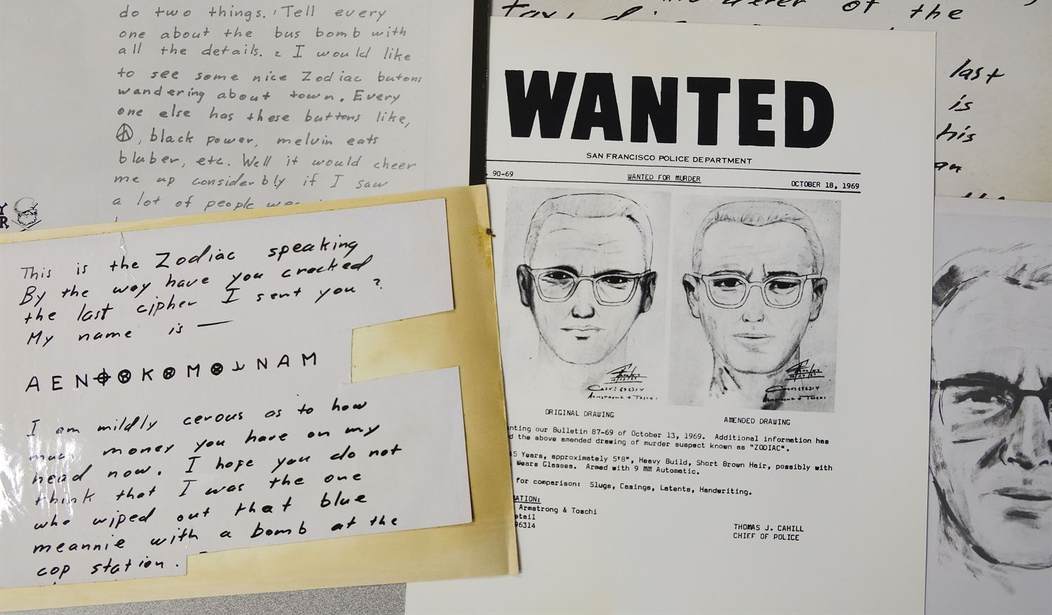 do two things. Tell every
one about the bus bomb with
all the details. 2 I would like
to see some nice Zodiac butons
wandering about town. Every
one else has these buttons like,
☮, black power, melvin eats
bluber, etc. Well it would cheer
me up considerbly if I saw
a lot of people
This is the Zodiac speaking
By the way have you cracked
the last cipher I sent you ?
My name is —
A E N ⊕ K M N A M
I am mildly cerous as to how
much money you have on my
head now. I hope you do not
think that I was the one
who wiped out that blue
meannie with a bomb at the
cop station.
of the
last
is
his
an
WANTED
SAN FRANCISCO POLICE DEPARTMENT
90-69 WANTED FOR MURDER OCTOBER 18, 1969
ORIGINAL DRAWING AMENDED DRAWING
our Bulletin 87-69 of October 13, 1969. Additional information has
the above amended drawing of murder suspect known as "ZODIAC".
Years, approximately 5'8", Heavy Build, Short Brown Hair, possibly with
Wears Glasses. Armed with 9 MM Automatic.
for comparison: Slugs, Casings, Latents, Handwriting.
Armstrong & Toschi
THOMAS J. CAHILL
CHIEF OF POLICE